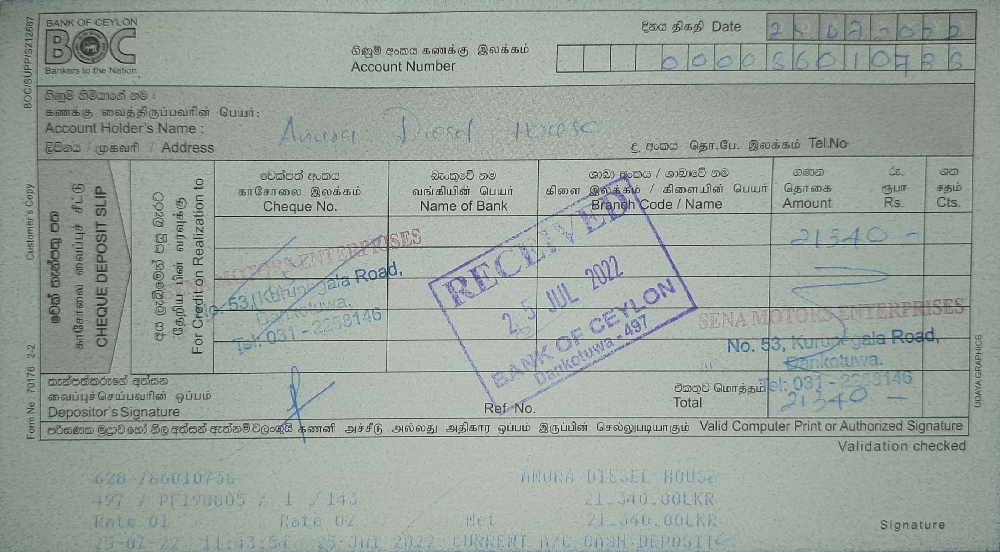 BOC/SUPP/S212687
BANK OF CEYLON
BOC
Bankers to the Nation
දිනය திகதி Date
ගිණුම් අංකය கணக்கு இலக்கம்
Account Number
ගිණුම් හිමියාගේ නම :
கணக்கு வைத்திருப்பவரின் பெயர்:
Account Holder's Name : Anura Diesel House
ලිපිනය / முகவரி / Address
දු. අංකය தொ.பே. இலக்கம் Tel.No
Customer's Copy
චෙක් තැන්පතු පත
காசோலை வைப்புச் சீட்டு
CHEQUE DEPOSIT SLIP
For Credit on Realization to
චෙක්පත් අංකය
காசோலை இலக்கம்
Cheque No.
බැංකුවේ නම
வங்கியின் பெயர்
Name of Bank
ශාඛා අංකය / ශාඛාවේ නම
கிளை இலக்கம் / கிளையின் பெயர்
Branch Code / Name
ගණන
தொகை
Amount
රු.
ரூபா
Rs.
ශත
சதம்
Cts.
21340 -
SENA MOTORS ENTERPRISES
No. 53, Kurunegala Road,
Dankotuwa.
Tel: 031 - 2258146
RECEIVED
25 JUL 2022
BANK OF CEYLON
Dankotuwa - 497
SENA MOTORS ENTERPRISES
No. 53, Kurunegala Road,
Dankotuwa.
Tel: 031 - 2258146
තැන්පත්කරුගේ අත්සන
வைப்புச்செய்பவரின் ஒப்பம்
Depositor's Signature
Ref No.
එකතුව மொத்தம்
Total
21340 -
Form No : 70176 2-2
UDAYA GRAPHICS
Valid Computer Print or Authorized Signature
Validation checked
ANURA DIESEL HOUSE
497 / PF198805 / 1 / 143
21,340.00LKR
Rate 01 Rate 02 Net 21,340.00LKR
Signature
25-07-22 11:43:54 25 Jul 2022 CURRENT A/C CASH DEPOSIT